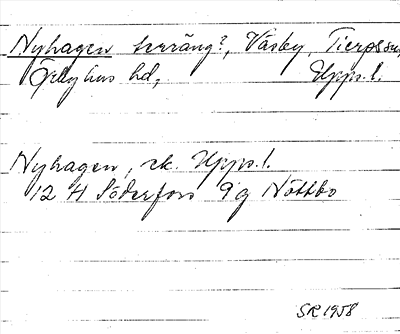 Nyhagen terräng?, Väsby, Tierps sn,
Örbyhus hd, Upps.l.
Nyhagen, ek. Upps.l.
12 H Söderfors 9g Nöttbo
SR 1958